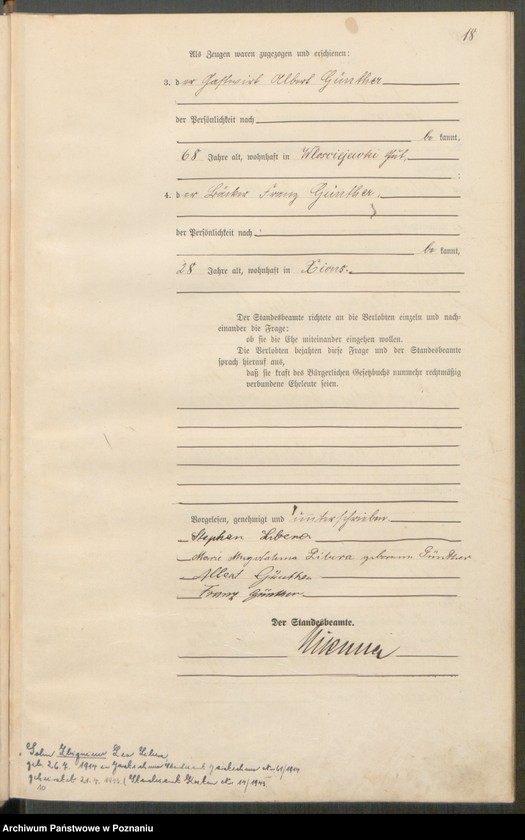 18
Als Zeugen waren zugezogen und erschienen:
3. der Gastwirt Albert Günther
der Persönlichkeit nach
be kannt,
68 Jahre alt, wohnhaft in Gut.
4. der Bäcker Franz Günther
der Persönlichkeit nach
be kannt,
28 Jahre alt, wohnhaft in Xions.
Der Standesbeamte richtete an die Verlobten einzeln und nach-
einander die Frage:
ob sie die Ehe miteinander eingehen wollen.
Die Verlobten bejahten diese Frage und der Standesbeamte
sprach hierauf aus,
daß sie kraft des Bürgerlichen Gesetzbuchs nunmehr rechtmäßig
verbundene Eheleute seien.
Vorgelesen, genehmigt und unterschrieben
Stephan Libera
Marie Magdalena Libera geborene Günther
Albert Günther
Franz Günther
Der Standesbeamte.
Sohn Zbigniew Leo Libera
geb. 26.7. 1914 in Standesamt No 61/1914
geheiratet (Standesamt No 14/1945
10
Archiwum Państwowe w Poznaniu